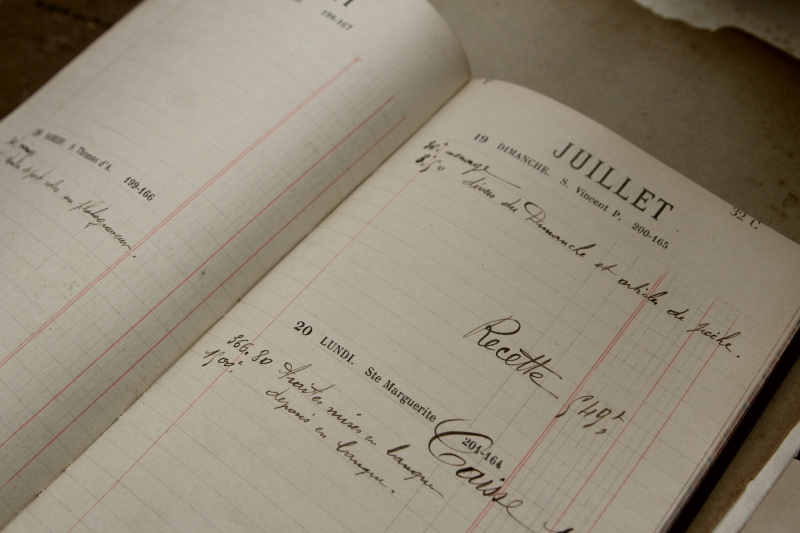 196-167
18 SAMEDI. S. Thomas d'A. 199-166
photograveur.
JUILLET
32 C.
19 DIMANCHE. S. Vincent P. 200-165
ménage
8,50 divers du Dimanche et articles de poche.
Recette
20 LUNDI. Ste Marguerite 201-164
366.80 traites mises en banque
déposé en banque.
Caisse